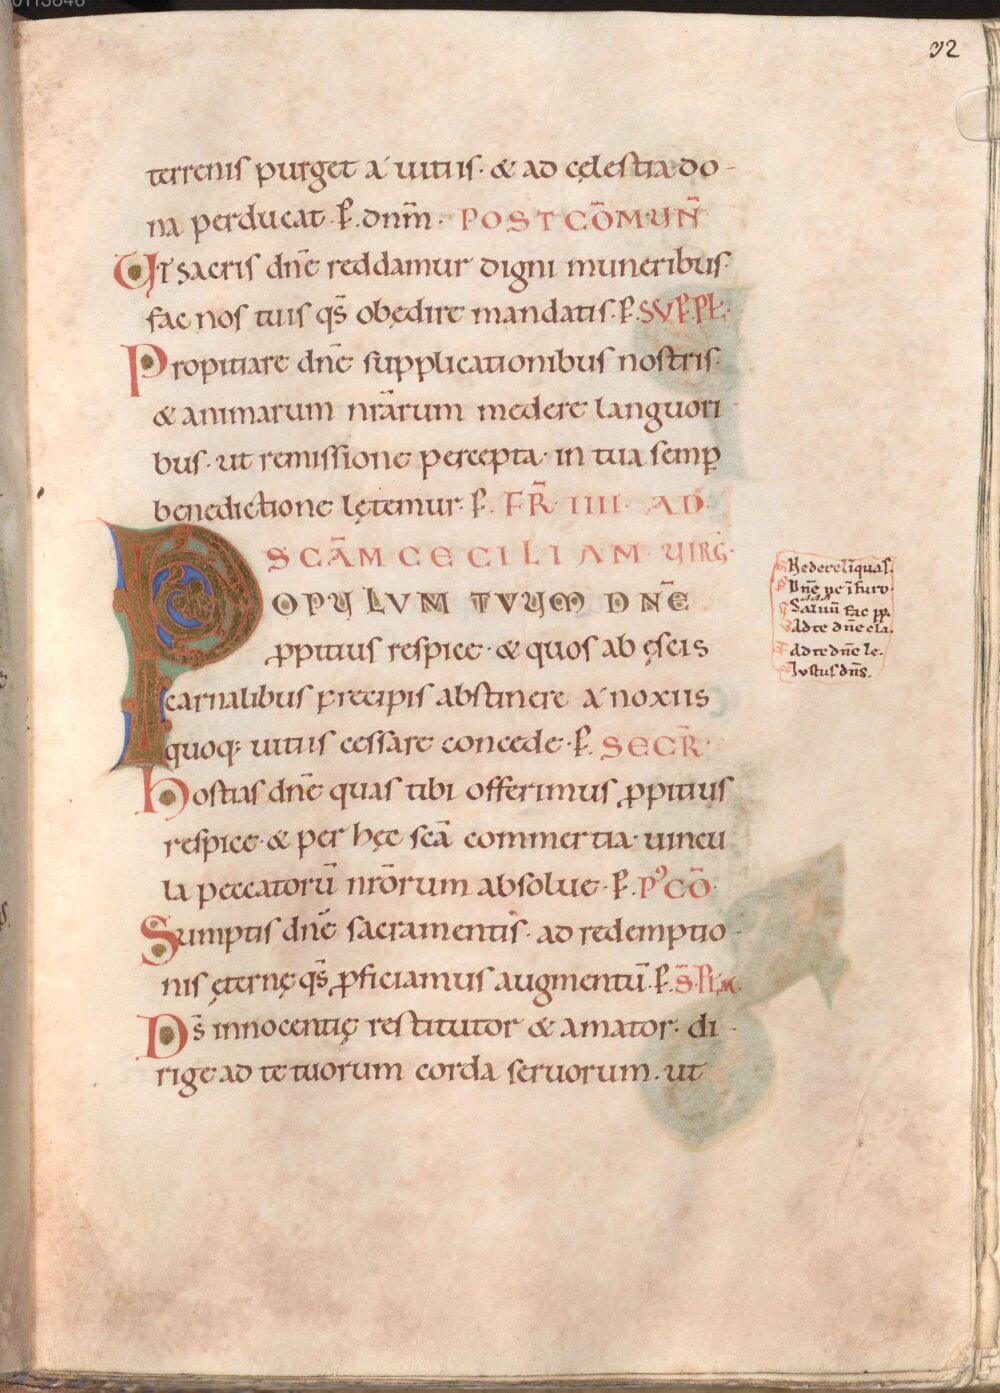 32
terrenis purget a uitiis· & ad cęlestia do-
na perducat· ꝑ. dnm̄· POST CŌMUN̄
Ut sacris dn̄e reddamur digni muneribus·
fac nos tuis qs̄ obędire mandatis· ꝑ. SUP. PŁ·
Propitiare dn̄e supplicationibus nostris·
& animarum nr̄arum medere languori
bus· ut remissione percepta· in tua semp̄
benedictione lętemur· ꝑ. FR̄ IIII· AD
SCĀM CECILIAM UIRḠ·
POPULUM TUUM DN̄E
ꝓpitius respice· & quos ab ęscis
carnalibus precipis abstinere a noxiis
quoq; uitiis cessare concede· ꝑ. SECR̄·
Hostias dn̄e quas tibi offerimus ꝓpitius
respice· & per hęc scā commertia· uincu
la peccatorū nr̄orum absolue· ꝑ. P᾽CŌ·
Sumptis dn̄e sacramentis· ad redemptio-
nis ęternę qs̄ ꝓficiamus augmentū· ꝑ. S̄. PŁM.
Ds̄ innocentię restitutor & amator· di-
rige ad te tuorum corda seruorum· ut
Redere līquas·
Dn̄e ne ī furo·
Saluū fac pp.
Ad te dn̄e cla.
Ad te dn̄e le·
Iustus dn̄s.